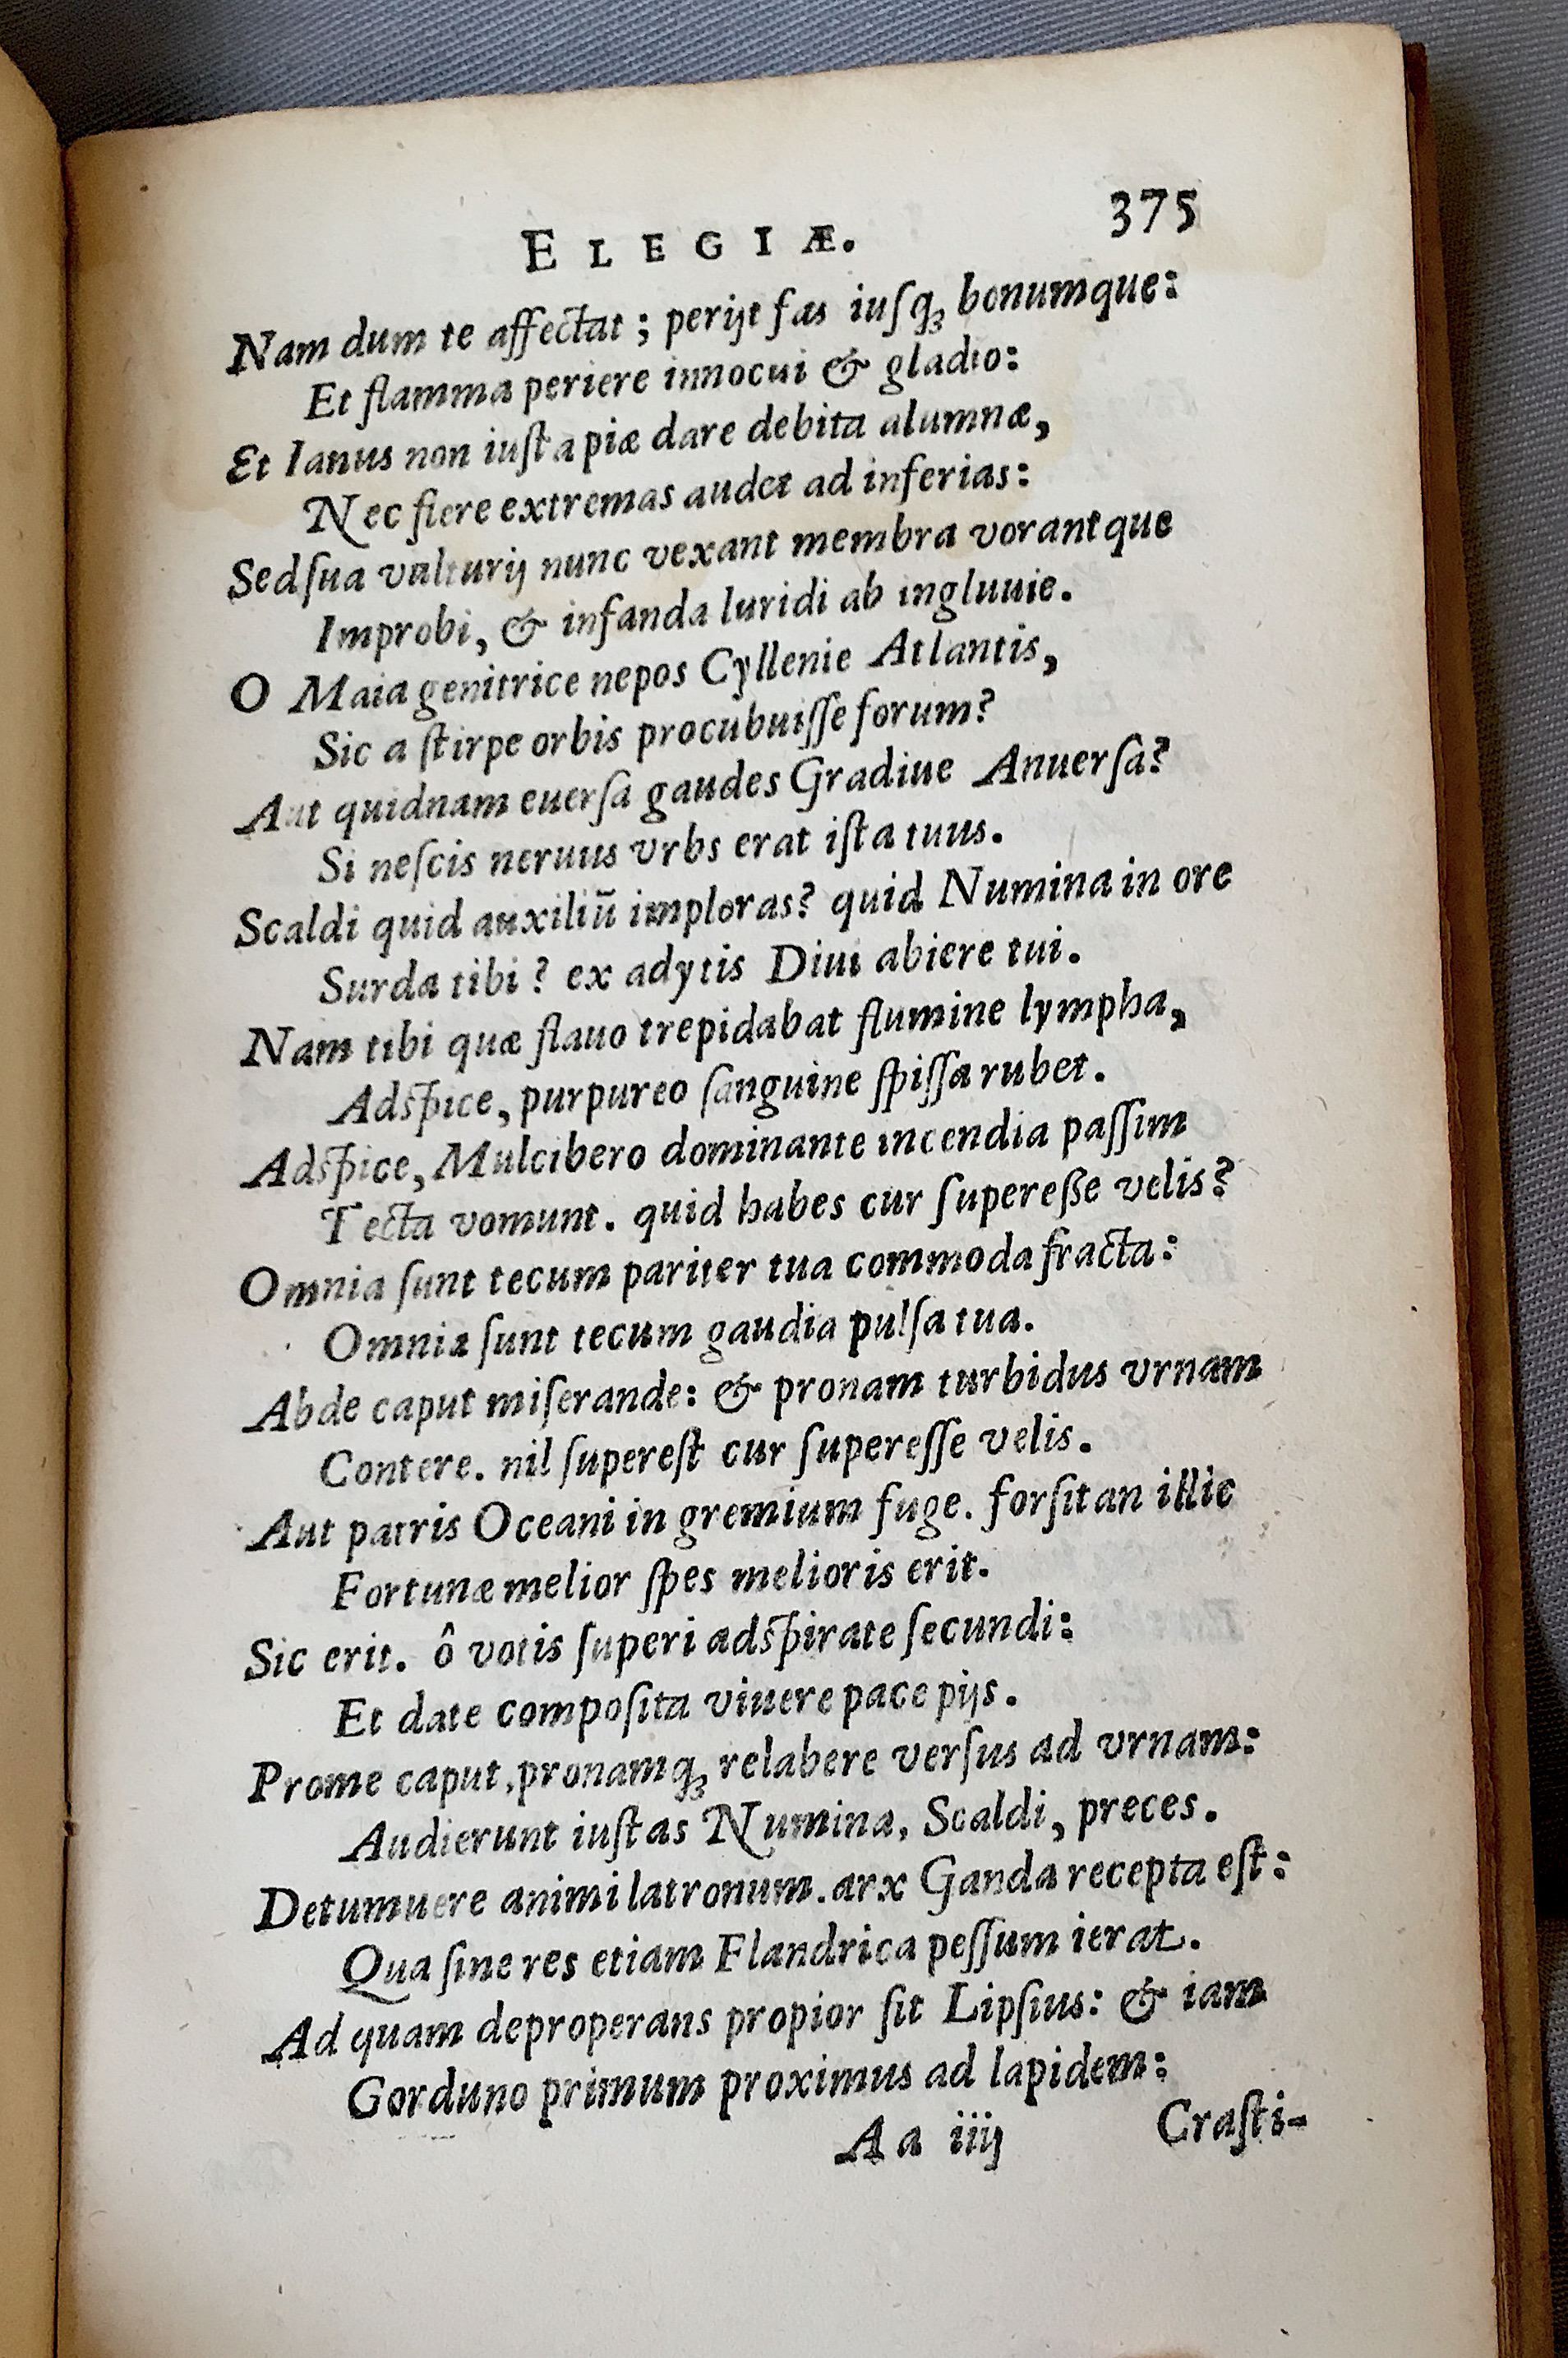 375
ELEGIÆ.
Nam dum te affectat; perijt fas iuſqꝫ bonumque:
Et flamma periere innocui & gladio:
Et Ianus non iuſta piæ dare debita alumnæ,
Nec fiere extremas audet ad inferias:
Sed ſua vulturij nunc vexant membra vorantque
Improbi, & infanda luridi ab ingluuie.
O Maia genitrice nepos Cyllenie Atlantis,
Sic a ſtirpe orbis procubuiſſe forum?
Aut quidnam euerſa gaudes Gradiue Anuerſa?
Si neſcis neruus vrbs erat iſta tuus.
Scaldi quid auxiliū imploras? quid Numina in ore
Surda tibi? ex adytis Diui abiere tui.
Nam tibi quæ flauo trepidabat flumine lympha,
Adſpice, purpureo ſanguine ſpiſſa rubet.
Adſpice, Mulcibero dominante incendia paſſim
Tecta vomunt. quid habes cur ſupereße velis?
Omnia ſunt tecum pariter tua commoda fracta:
Omnia ſunt tecum gaudia pulſa tua.
Abde caput miſerande: & pronam turbidus vrnam
Contere. nil ſupereſt cur ſupereſſe velis.
Aut patris Oceani in gremium fuge. forſitan illic
Fortunæ melior ſpes melioris erit.
Sic erit. ô votis ſuperi adſpirate ſecundi:
Et date compoſita viuere pace pijs.
Prome caput, pronamqꝫ relabere verſus ad vrnam:
Audierunt iuſtas Numina, Scaldi, preces.
Detumuere animi latronum. arx Ganda recepta eſt:
Qua ſine res etiam Flandrica peſſum ierat.
Ad quam deproperans propior ſit Lipſius: & iam
Gorduno primum proximus ad lapidem:
Aa iiij
Craſti-